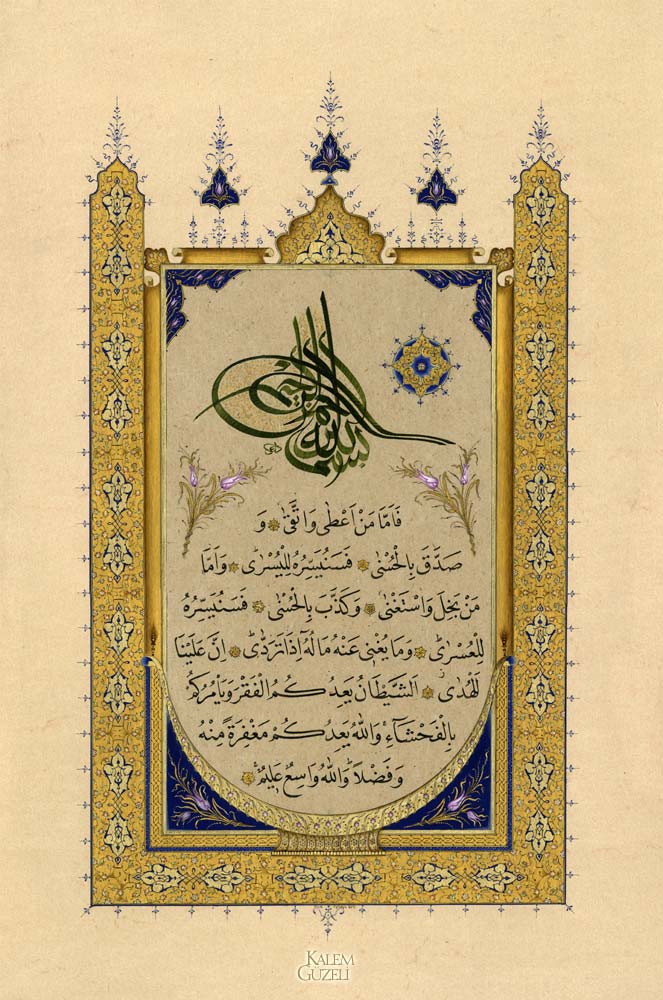 بسم الله الرحمن الرحيم
فَاَمَّا مَنْ اَعْطٰى وَاتَّقٰىۙ وَ
صَدَّقَ بِالْحُسْنٰىۙ فَسَنُيَسِّرُهُ لِلْيُسْرٰى وَاَمَّا
مَنْ بَخِلَ وَاسْتَغْنٰىۙ وَكَذَّبَ بِالْحُسْنٰىۙ فَسَنُيَسِّرُهُ
لِلْعُسْرٰى وَمَا يُغْنٖي عَنْهُ مَالُهُٓ اِذَا تَرَدّٰى اِنَّ عَلَيْنَا
لَلْهُدٰى اَلشَّيْطَانُ يَعِدُكُمُ الْفَقْرَ وَيَأْمُرُكُمْ
بِالْفَحْشَٓاءِ وَاللّٰهُ يَعِدُكُمْ مَغْفِرَةً مِنْهُ
وَفَضْلًا وَاللّٰهُ وَاسِعٌ عَلٖيمٌ
KALEM
GÜZELİ